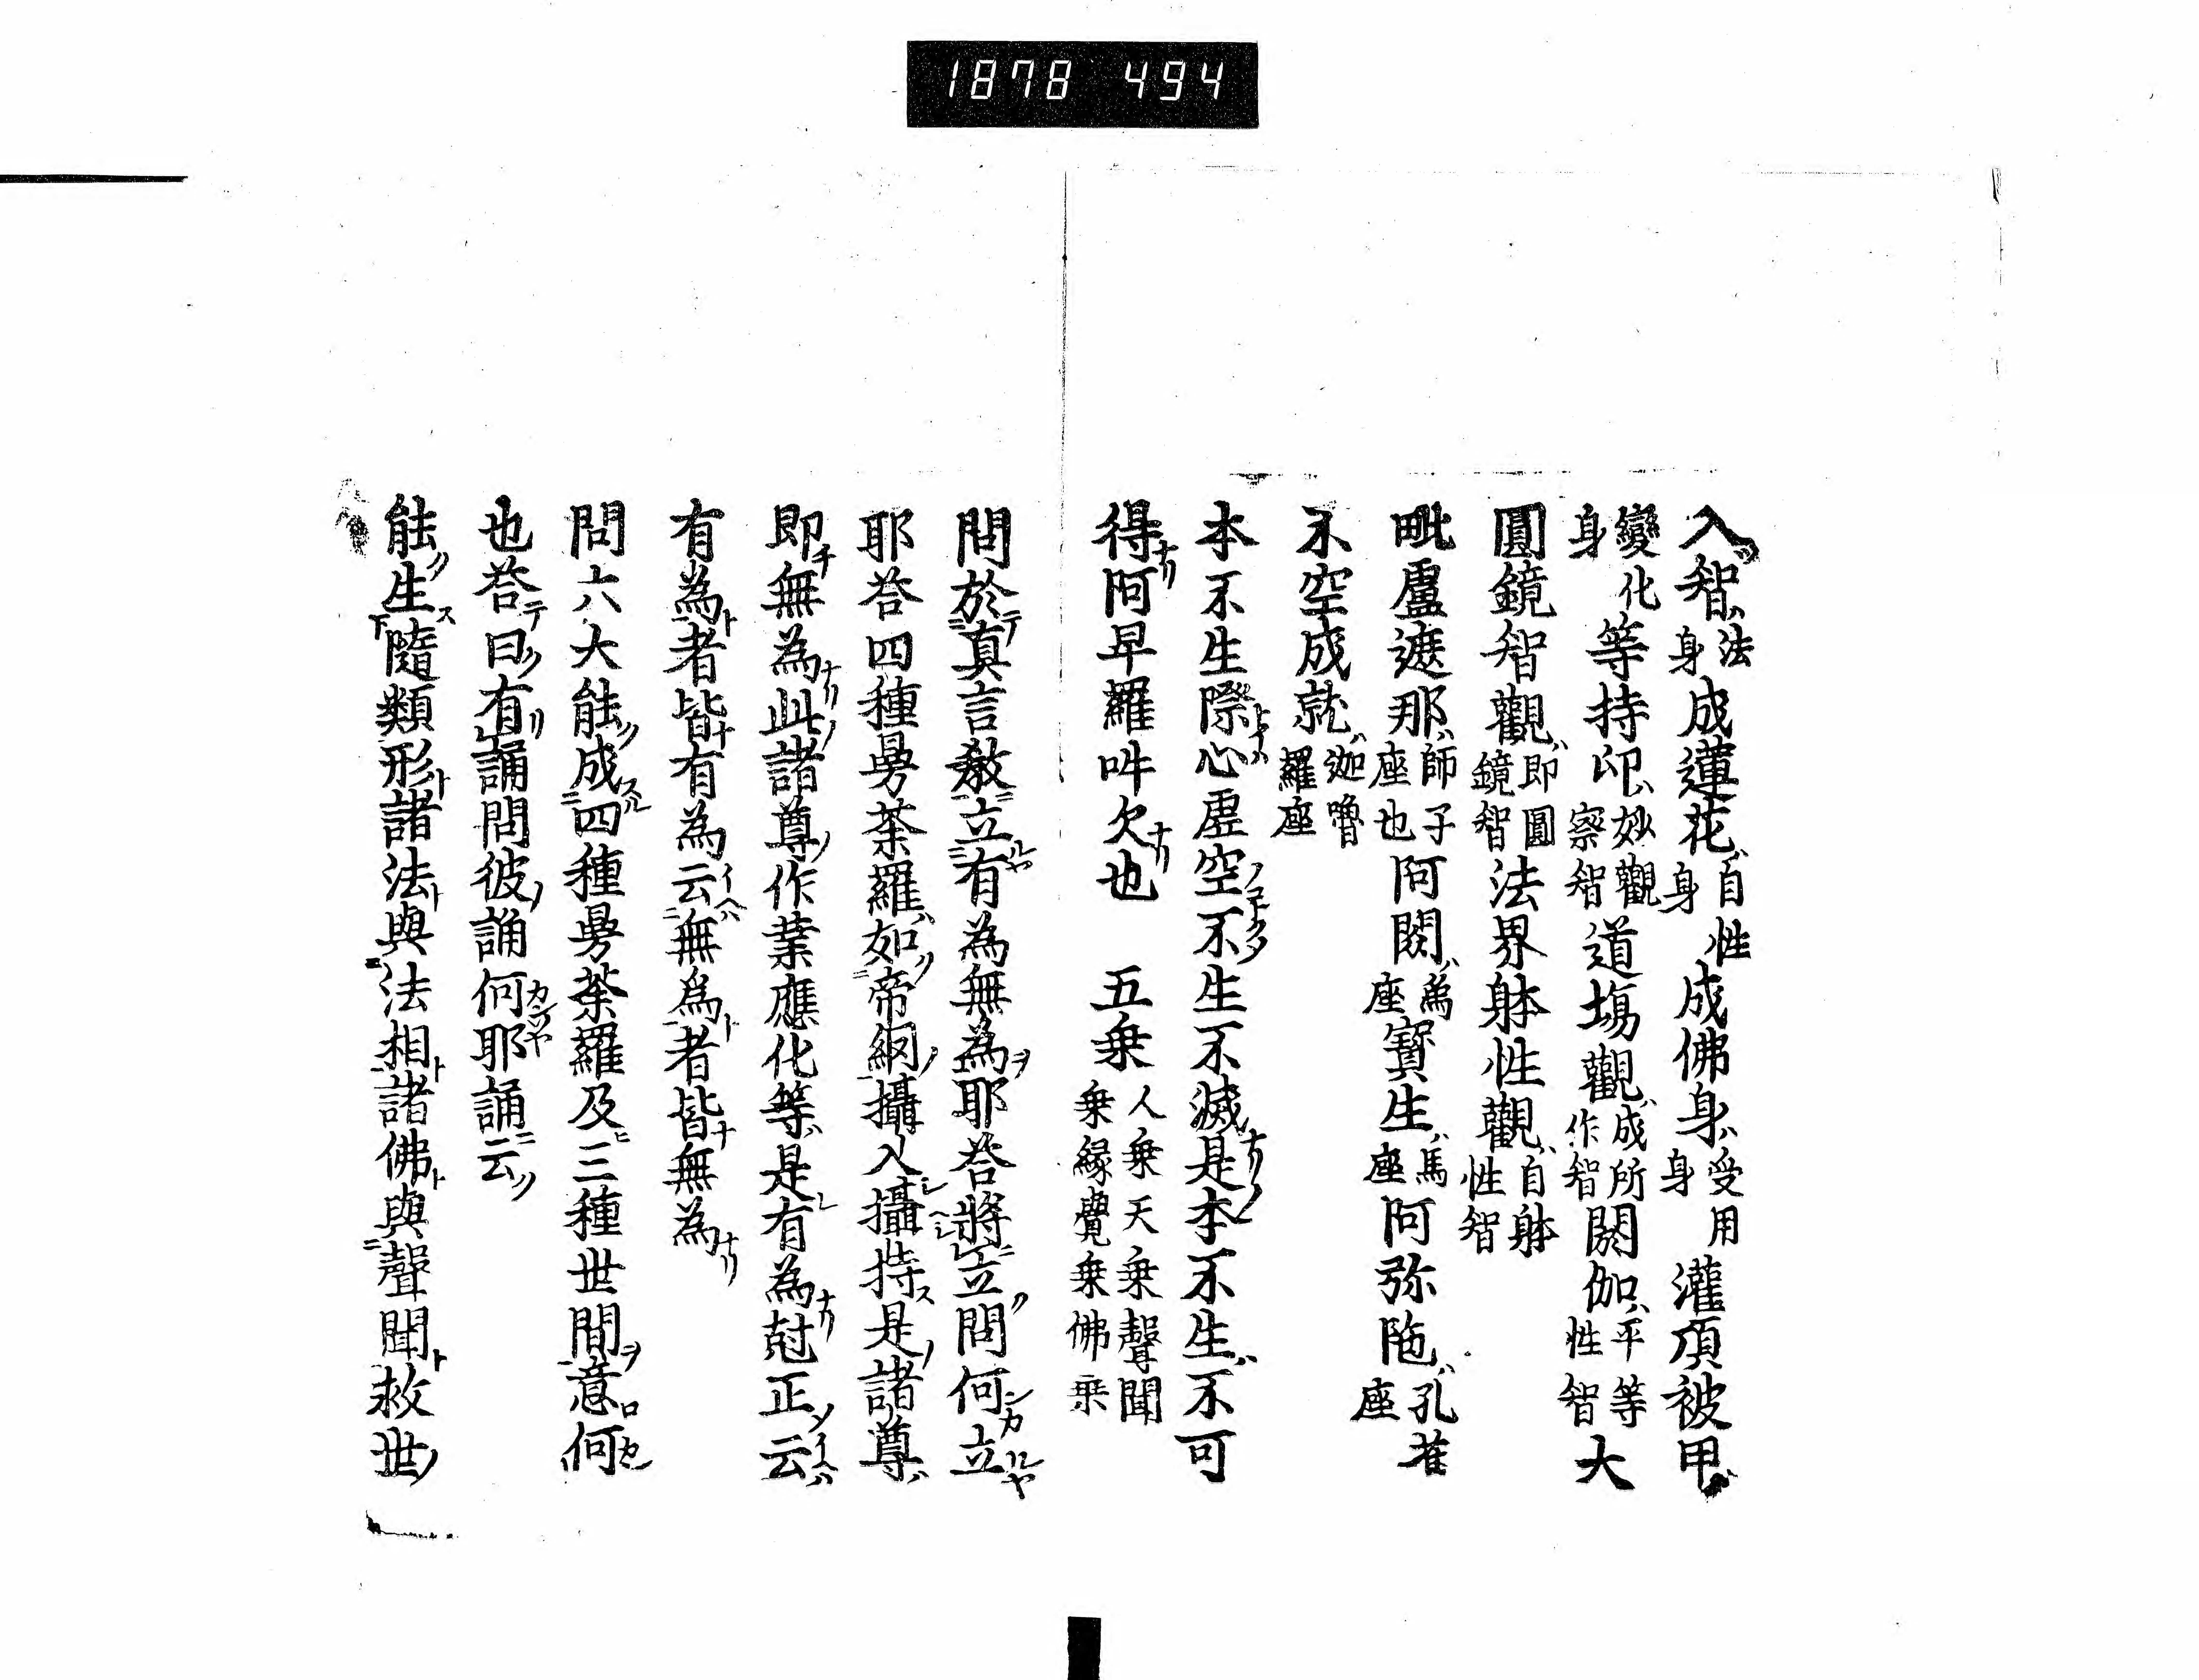 1878 494
入智法身成蓮花自性身成佛身受用身灌頂被甲
變化身等持印妙觀察智道場觀成所作智閼伽平等性智大
圓鏡智觀即圓鏡智法界躰性觀自躰性智
毗盧遮那師子座也阿閦為座寳生馬座阿弥陁孔雀座
不空成就迦嚕羅座
本不生際心虚空不生不滅是本不生不可
得阿卑羅吽欠也 五乗人乗天乗聲聞乗縁覺乗佛乗
問於真言教立有為無為耶荅將立問何立
耶荅四種曼荼羅如帝網攝入攝持是諸尊
即無為此諸尊作業應化等是有為尅正云
有為者皆有為云無為者皆無為
問六大能成四種曼荼羅及三種世間意何
也荅曰有誦問彼誦何耶誦云
能生隨類形諸法與法相諸佛與聲聞救世